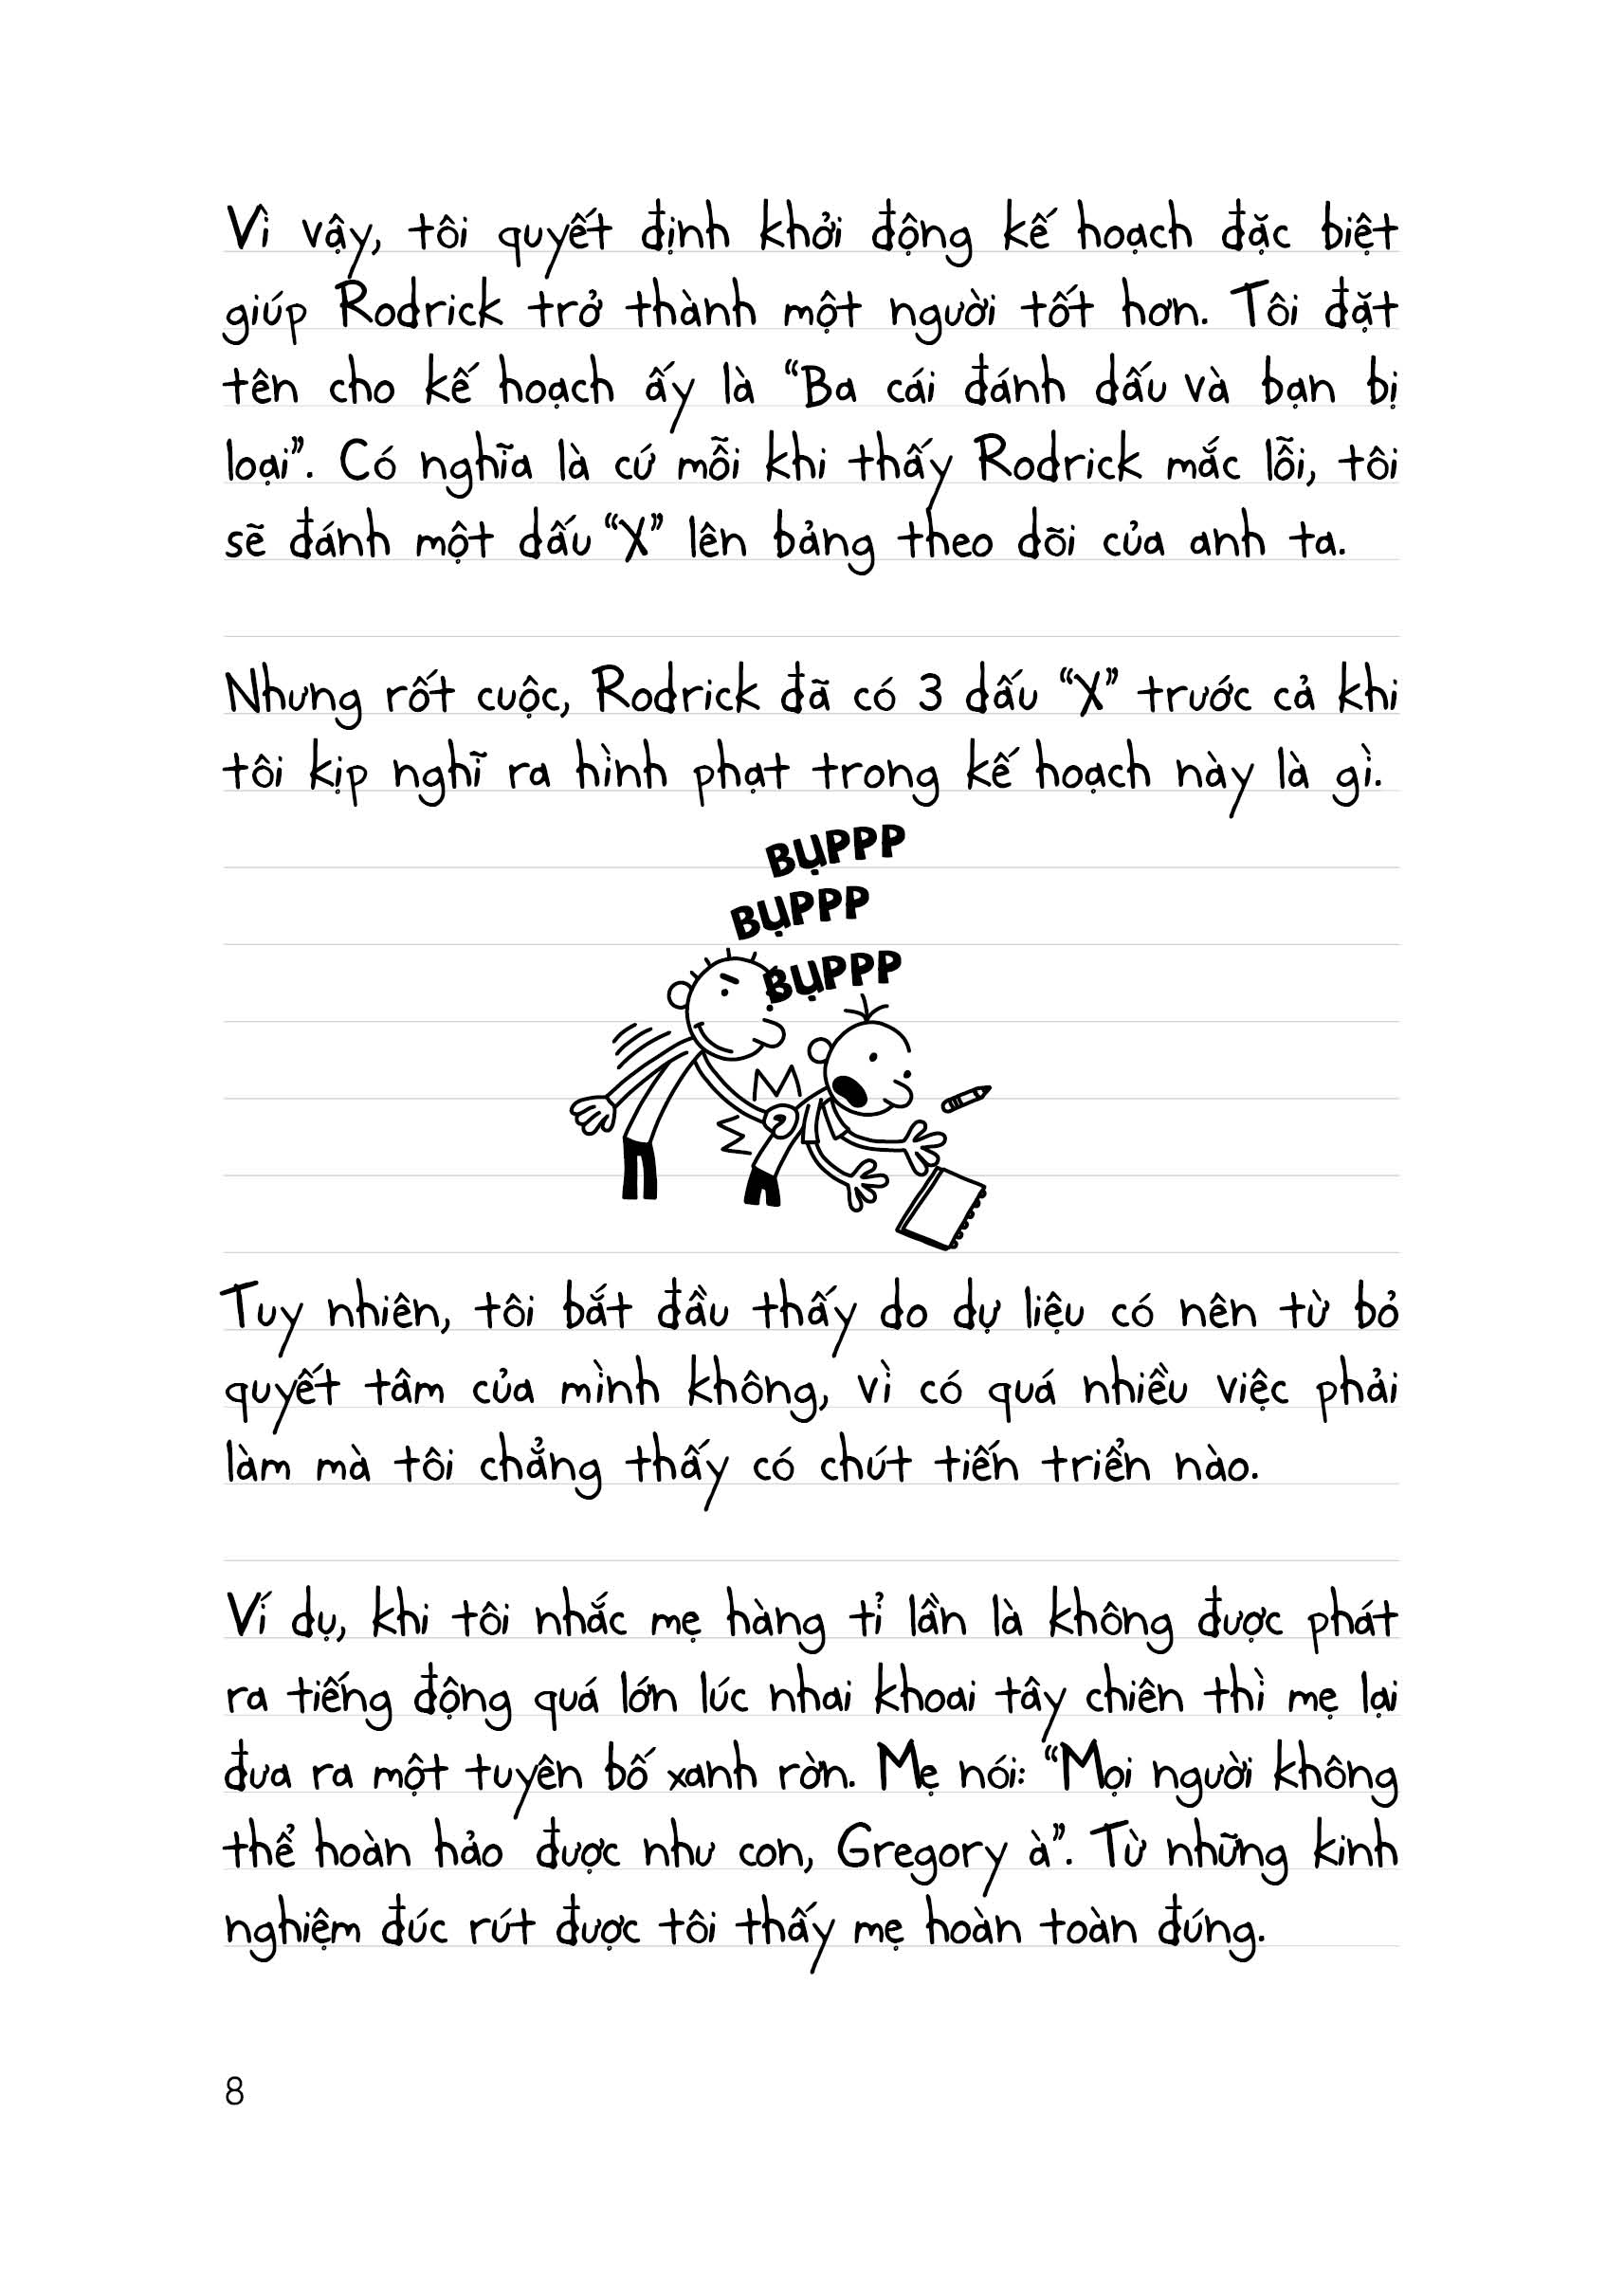 Vì vậy, tôi quyết định khởi động kế hoạch đặc biệt
giúp Rodrick trở thành một người tốt hơn. Tôi đặt
tên cho kế hoạch ấy là “Ba cái đánh dấu và bạn bị
loại”. Có nghĩa là cứ mỗi khi thấy Rodrick mắc lỗi, tôi
sẽ đánh một dấu “X” lên bảng theo dõi của anh ta.
Nhưng rốt cuộc, Rodrick đã có 3 dấu “X” trước cả khi
tôi kịp nghĩ ra hình phạt trong kế hoạch này là gì.
BỤPPP
BỤPPP
BỤPPP
Tuy nhiên, tôi bắt đầu thấy do dự liệu có nên từ bỏ
quyết tâm của mình không, vì có quá nhiều việc phải
làm mà tôi chẳng thấy có chút tiến triển nào.
Ví dụ, khi tôi nhắc mẹ hàng tỉ lần là không được phát
ra tiếng động quá lớn lúc nhai khoai tây chiên thì mẹ lại
đưa ra một tuyên bố xanh rờn. Mẹ nói: “Mọi người không
thể hoàn hảo được như con, Gregory à”. Từ những kinh
nghiệm đúc rút được tôi thấy mẹ hoàn toàn đúng.
8